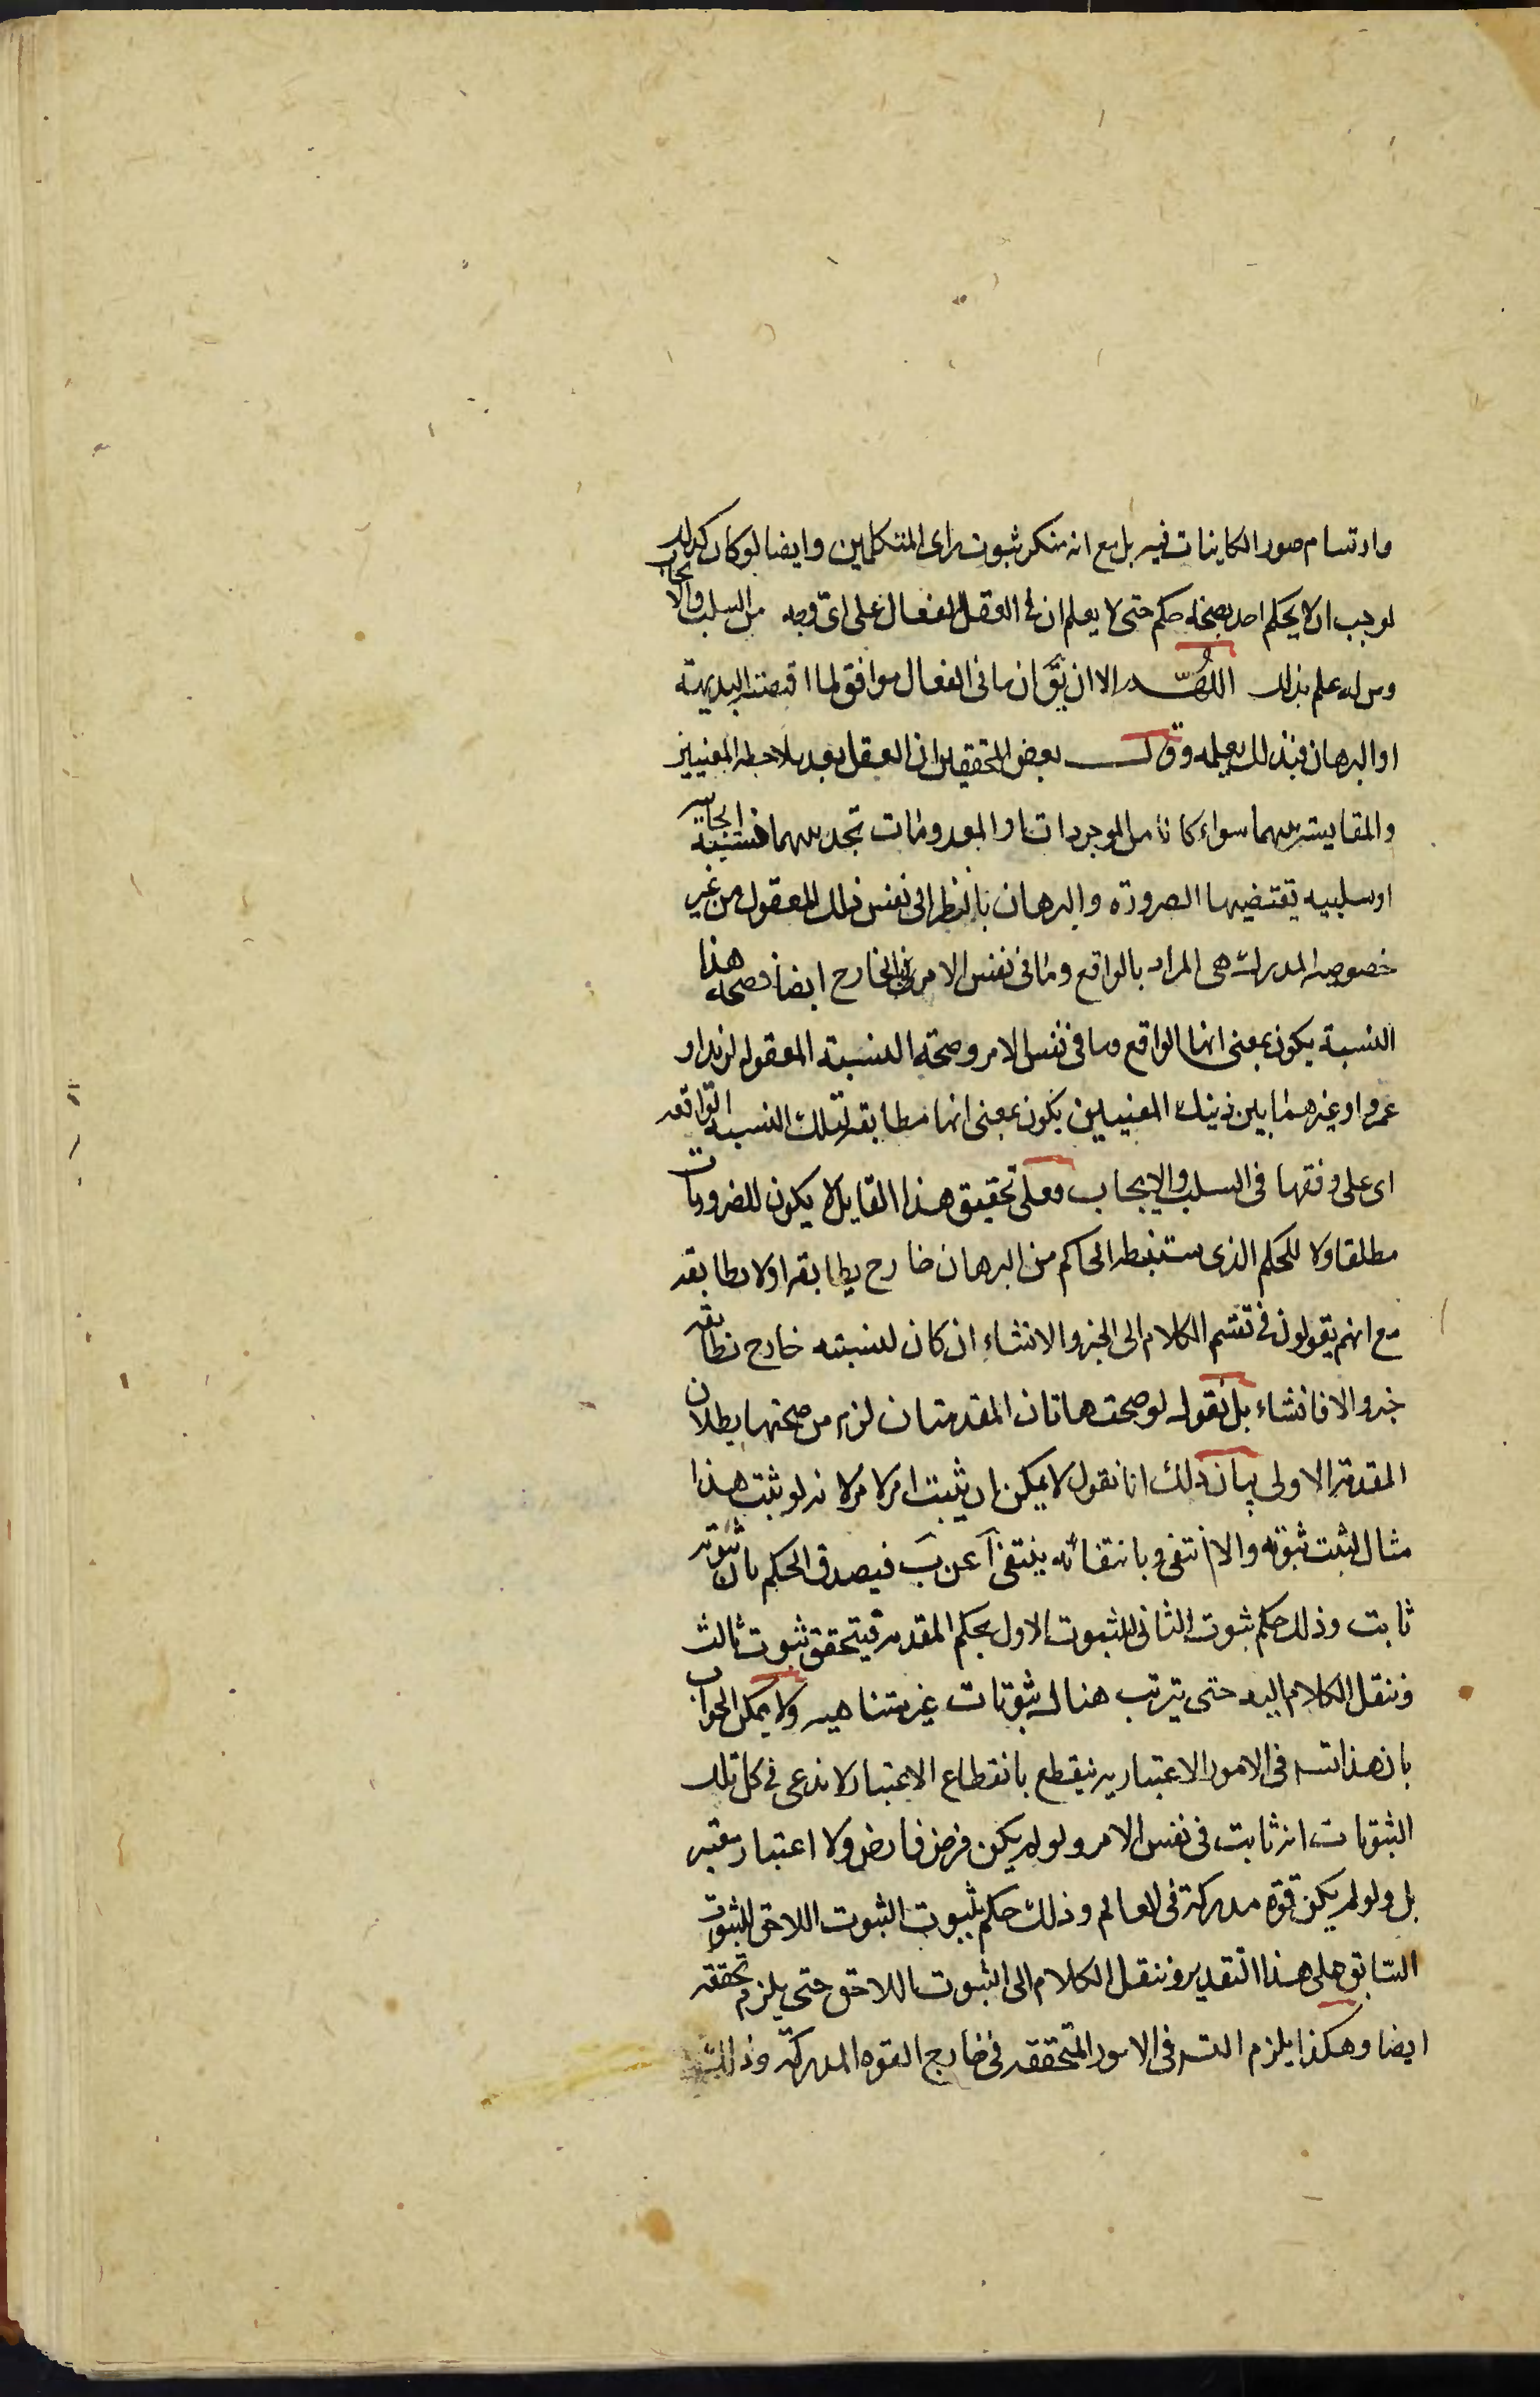 وارتسام صور الكاينات فيه بل مع انه منكر ثبوت راى المتكلمين وايضا لو كان كذلك
لوجب ان لا يحكم احد بصحة حكم حتى لا يعلم ان فى العقل الفعال على اى وجه من السلب والايجاب
ومن له علم بذلك اللهم الا ان يق ان ما فى الفعال موافق لما اقتضته البديهة
او البرهان فبذلك يعلمه وقال بعض المحققين ان العقل بعد ملاحظه المعنيين
والمقايسه بينهما سواء كانا من الموجودات او المعدومات تجد بينهما نسبة ايجابية
او سلبيه تقتضيها الضرورة والبرهان بالنظر الى نفس ذلك المعقول من غير
خصوصيه المدرك هى المراد بالواقع وما فى نفس الامر وبالخارج ايضا فصحه هذا
النسبة يكون بمعنى انها الواقع وما فى نفس الامر وصحة النسبة المعقوله لزيد او
عمرو او غيرهما بين ذينك المعنيين يكون بمعنى انها مطابقة لتلك النسبه الواقعه
اى على وفقها فى السلب والايجاب فعلى تحقيق هذا القايل لا يكون للضروريات
مطلقا ولا للحكم الذى يستنبطه الحاكم من البرهان خارج يطابقه او لا يطابقه
مع انهم يقولون فى تقسيم الكلام الى الخبر والانشاء ان كان لنسبته خارج تطابقه
خبر والا فانشاء بل نقول لو صحت هاتان المقدمتان لزم من صحتهما بطلان
المقدمة الاولى بيان ذلك انا نقول لا يمكن ان يثبت امر لامر لانه لو ثبت هذا
مثال لثبت ثبوته والا انتفى وبانتفائه ينتفى آ عن ب فيصدق الحكم بان ثبوته
ثابت وذلك حكم بثبوت الثانى للثبوت الاول بحكم المقدمه فيتحقق ثبوت ثالث
فننقل الكلام اليه حتى يترتب هناك ثبوتات غير متناهيه ولا يمكن الجواب
بان هذا تسه فى الامور الاعتباريه فينقطع بانقطاع الاعتبار لانا ندعى فى كل تلك
الثبوتات انه ثابت فى نفس الامر ولو لم يكن فرض فارض ولا اعتبار معتبر
بل ولو لم يكن قوة مدركة فى العالم وذلك حكم بثبوت الثبوت اللاحق للثبوت
السابق على هذا التقدير وننقل الكلام الى الثبوت اللاحق حتى يلزم تحققه
ايضا وهكذا يلزم التسه فى الامور المتحققه فى خارج القوه المدركة وذلك